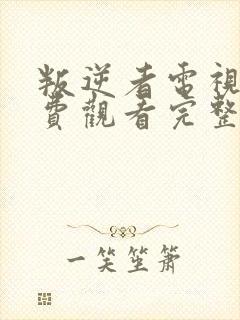 叛逆者電視
費觀看完整
一笑笙簫